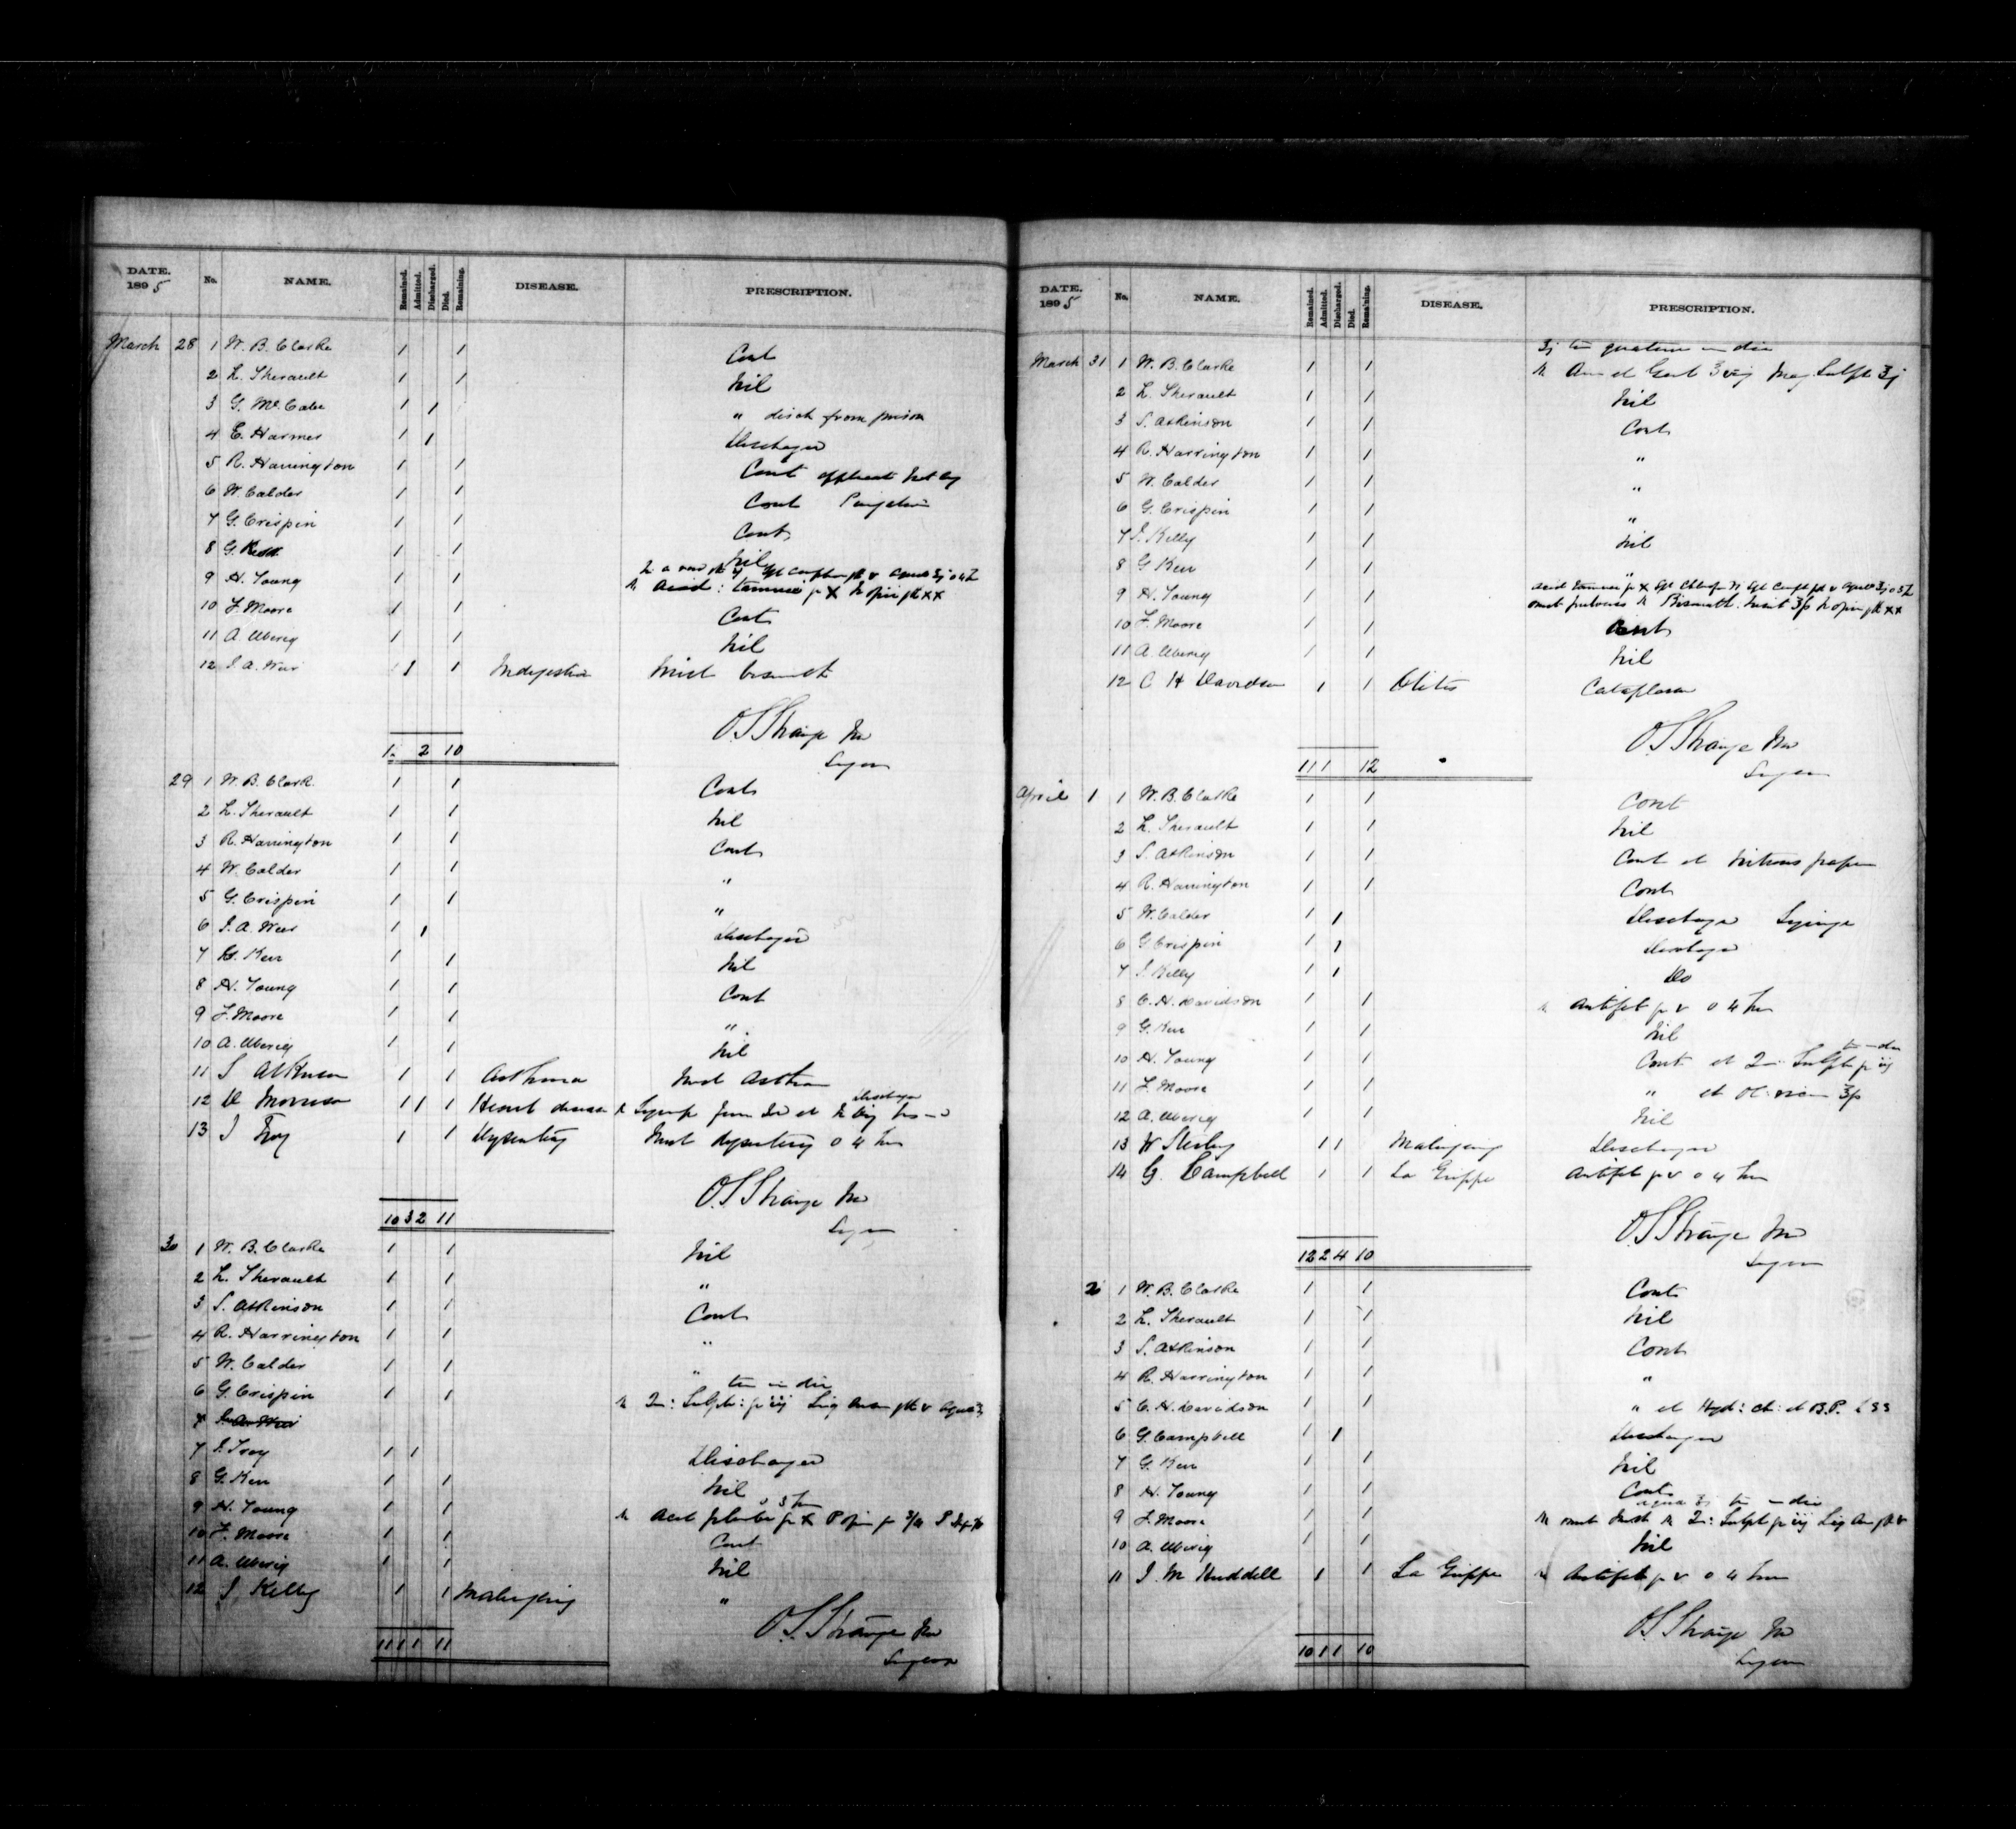 DATE. 1895 No. NAME. Remained. Admitted. Discharged. Died. Remaining. DISEASE. PRESCRIPTION.
March 28 1 W. B. Clarke 1 1 Cont
2 L. Therault 1 1 Nil
3 G. McCabe 1 1 " disch from prison
4 E. Harmer 1 1 Discharged
5 R. Harrington 1 1 Cont
6 W. Calder 1 1 Cont
7 G. Crispin 1 1 Cont
8 G. Kerr 1 1 Nil
9 H. Young 1 1
10 F. Moore 1 1 Cont
11 A. Uberig 1 1 Nil
12 J. A. Weir 1 1 Indigestion Mist bismuth
O. S. Strange MD
Surgeon
2 10
29 1 W. B. Clark. 1 1 Cont
2 L. Therault 1 1 Nil
3 R. Harrington 1 1 Cont
4 W. Calder 1 1 "
5 G. Crispin 1 1 "
6 J. A. Weir 1 1 Discharged
7 G. Kerr 1 1 Nil
8 H. Young 1 1 Cont
9 F. Moore 1 1 "
10 A. Uberig 1 1 Nil
11 S Atkinson 1 1 Asthma Mist Asthma
12 D Morrison 1 1 1 Heart disease Discharged
13 J Troy 1 1 Dysentery Mist dysentery o 4 hrs
O. S. Strange MD
Surgeon
10 3 2 11
30 1 W. B. Clarke 1 1 Nil
2 L. Therault 1 1 "
3 S. Atkinson 1 1 Cont
4 R. Harrington 1 1 "
5 W. Calder 1 1 "
6 G. Crispin 1 1 ter in die
7 J. A. Weir
7 J. Troy 1 1 Discharged
8 G. Kerr 1 1 Nil
9 H. Young 1 1
10 F. Moore 1 1 Cont
11 A. Uberig 1 1 Nil
12 J Kelly 1 1 Malingering "
O. S. Strange MD
Surgeon
11 1 1 11
DATE. 1895 No. NAME. Remained. Admitted. Discharged. Died. Remaining. DISEASE. PRESCRIPTION.
March 31 1 W. B. Clarke 1 1
2 L. Therault 1 1 Nil
3 S. Atkinson 1 1 Cont
4 R. Harrington 1 1 "
5 W. Calder 1 1 "
6 G. Crispin 1 1 "
7 J. Kelly 1 1 Nil
8 G Kerr 1 1 "
9 H. Young 1 1
10 F. Moore 1 1 Cont
11 A. Uberig 1 1 Nil
12 C H Davidson 1 1 Otitis Cataplasm
O. S. Strange MD
Surgeon
11 1 12
April 1 1 W. B. Clarke 1 1 Cont
2 L. Therault 1 1 Nil
3 S. Atkinson 1 1 Cont et Nitrous paper
4 R. Harrington 1 1 Cont
5 W. Calder 1 1 Discharged Syringe
6 G Crispin 1 1 Discharged
7 J. Kelly 1 1 Do
8 C. H. Davidson 1 1 Antifeb gr v o 4 hrs
9 G. Kerr 1 1 Nil
10 H. Young 1 1 Cont et
11 F. Moore 1 1 "
12 A. Uberig 1 1 Nil
13 W Sterling 1 1 Malingering Discharged
14 G. Campbell 1 1 La Grippe Antifeb gr v o 4 hrs
O. S. Strange MD
Surgeon
12 2 4 10
2 1 W. B. Clarke 1 1 Cont
2 L. Therault 1 1 Nil
3 S. Atkinson 1 1 Cont
4 R. Harrington 1 1 "
5 C. H. Davidson 1 1 "
6 G. Campbell 1 1 Discharged
7 G. Kerr 1 1 Nil
8 H. Young 1 1 Cont
9 F. Moore 1 1
10 A. Uberig 1 1 Nil
11 J. M Huddell 1 1 La Grippe Antifeb gr v o 4 hrs
O. S. Strange MD
Surgeon
10 1 1 10